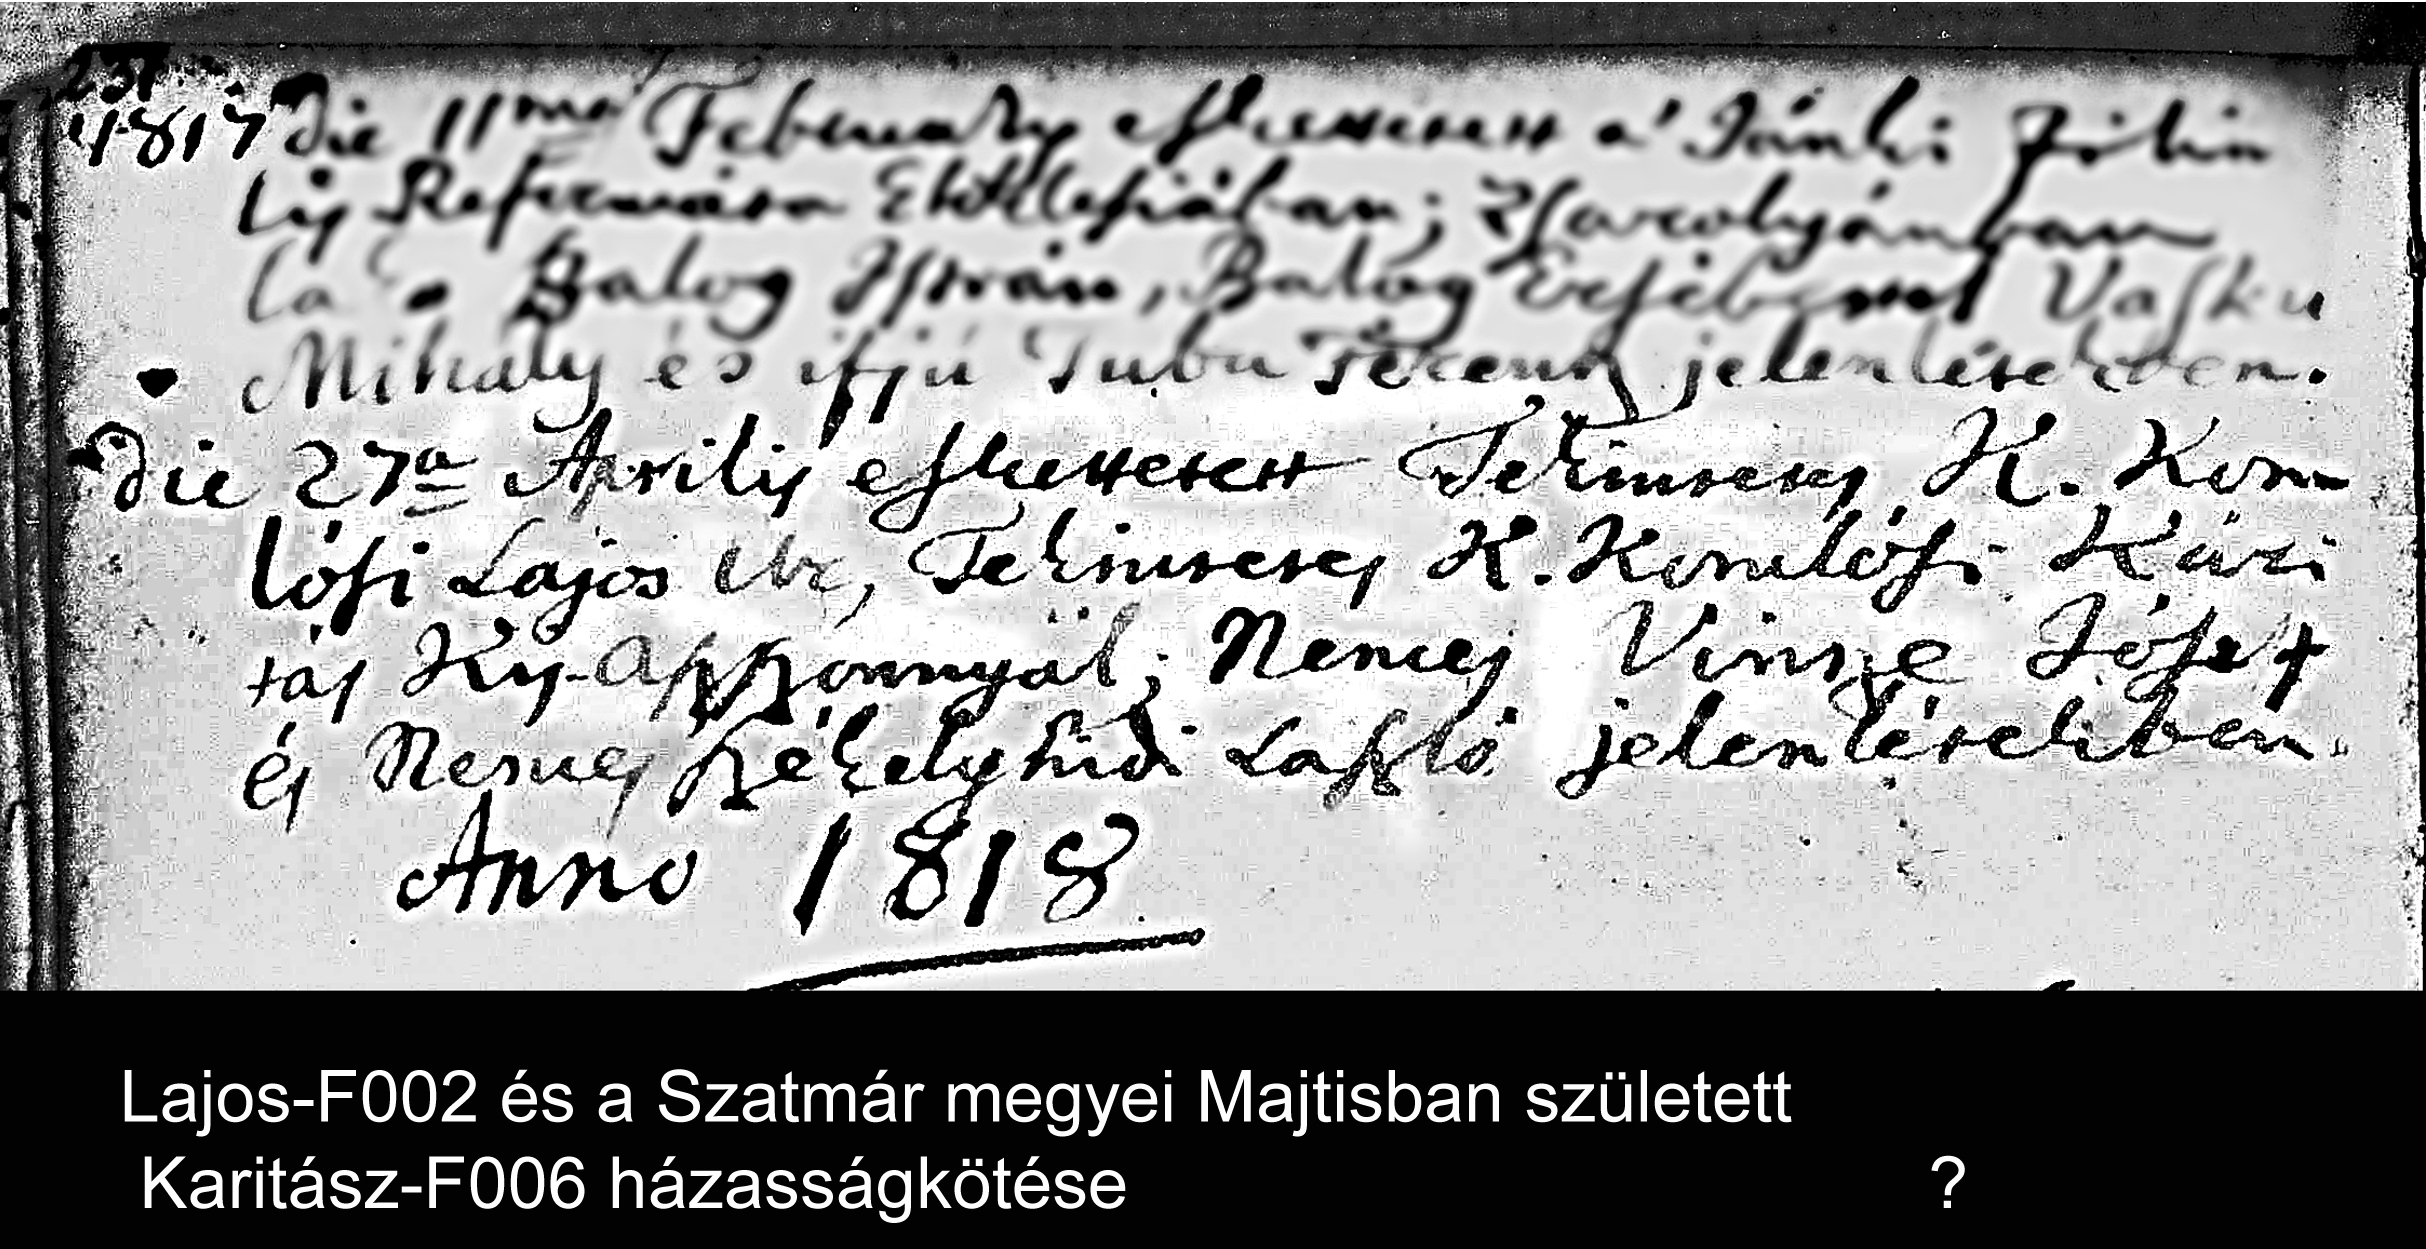 237
1817 Die 11ma February esküttetett a' Jánki Filia
lis Reformáta Ekklésiában; Zsarolyánban
la Balog Istvan, Balog Ersébettel Vasku
Mihály és ifjú Tuba Ferencz jelenlétekben.
Die 27a Aprilis esküttetett Tekintetes K. Kom-
lósi Lajos Ur, Tekintetes K. Komlósi Kári
tás Kis-Asszonnyal; Nemes Vincze Jósef
és Nemes Székelyhidi László jelenlétekben.
Anno 1818
Lajos-F002 és a Szatmár megyei Majtisban született
Karitász-F006 házasságkötése ?